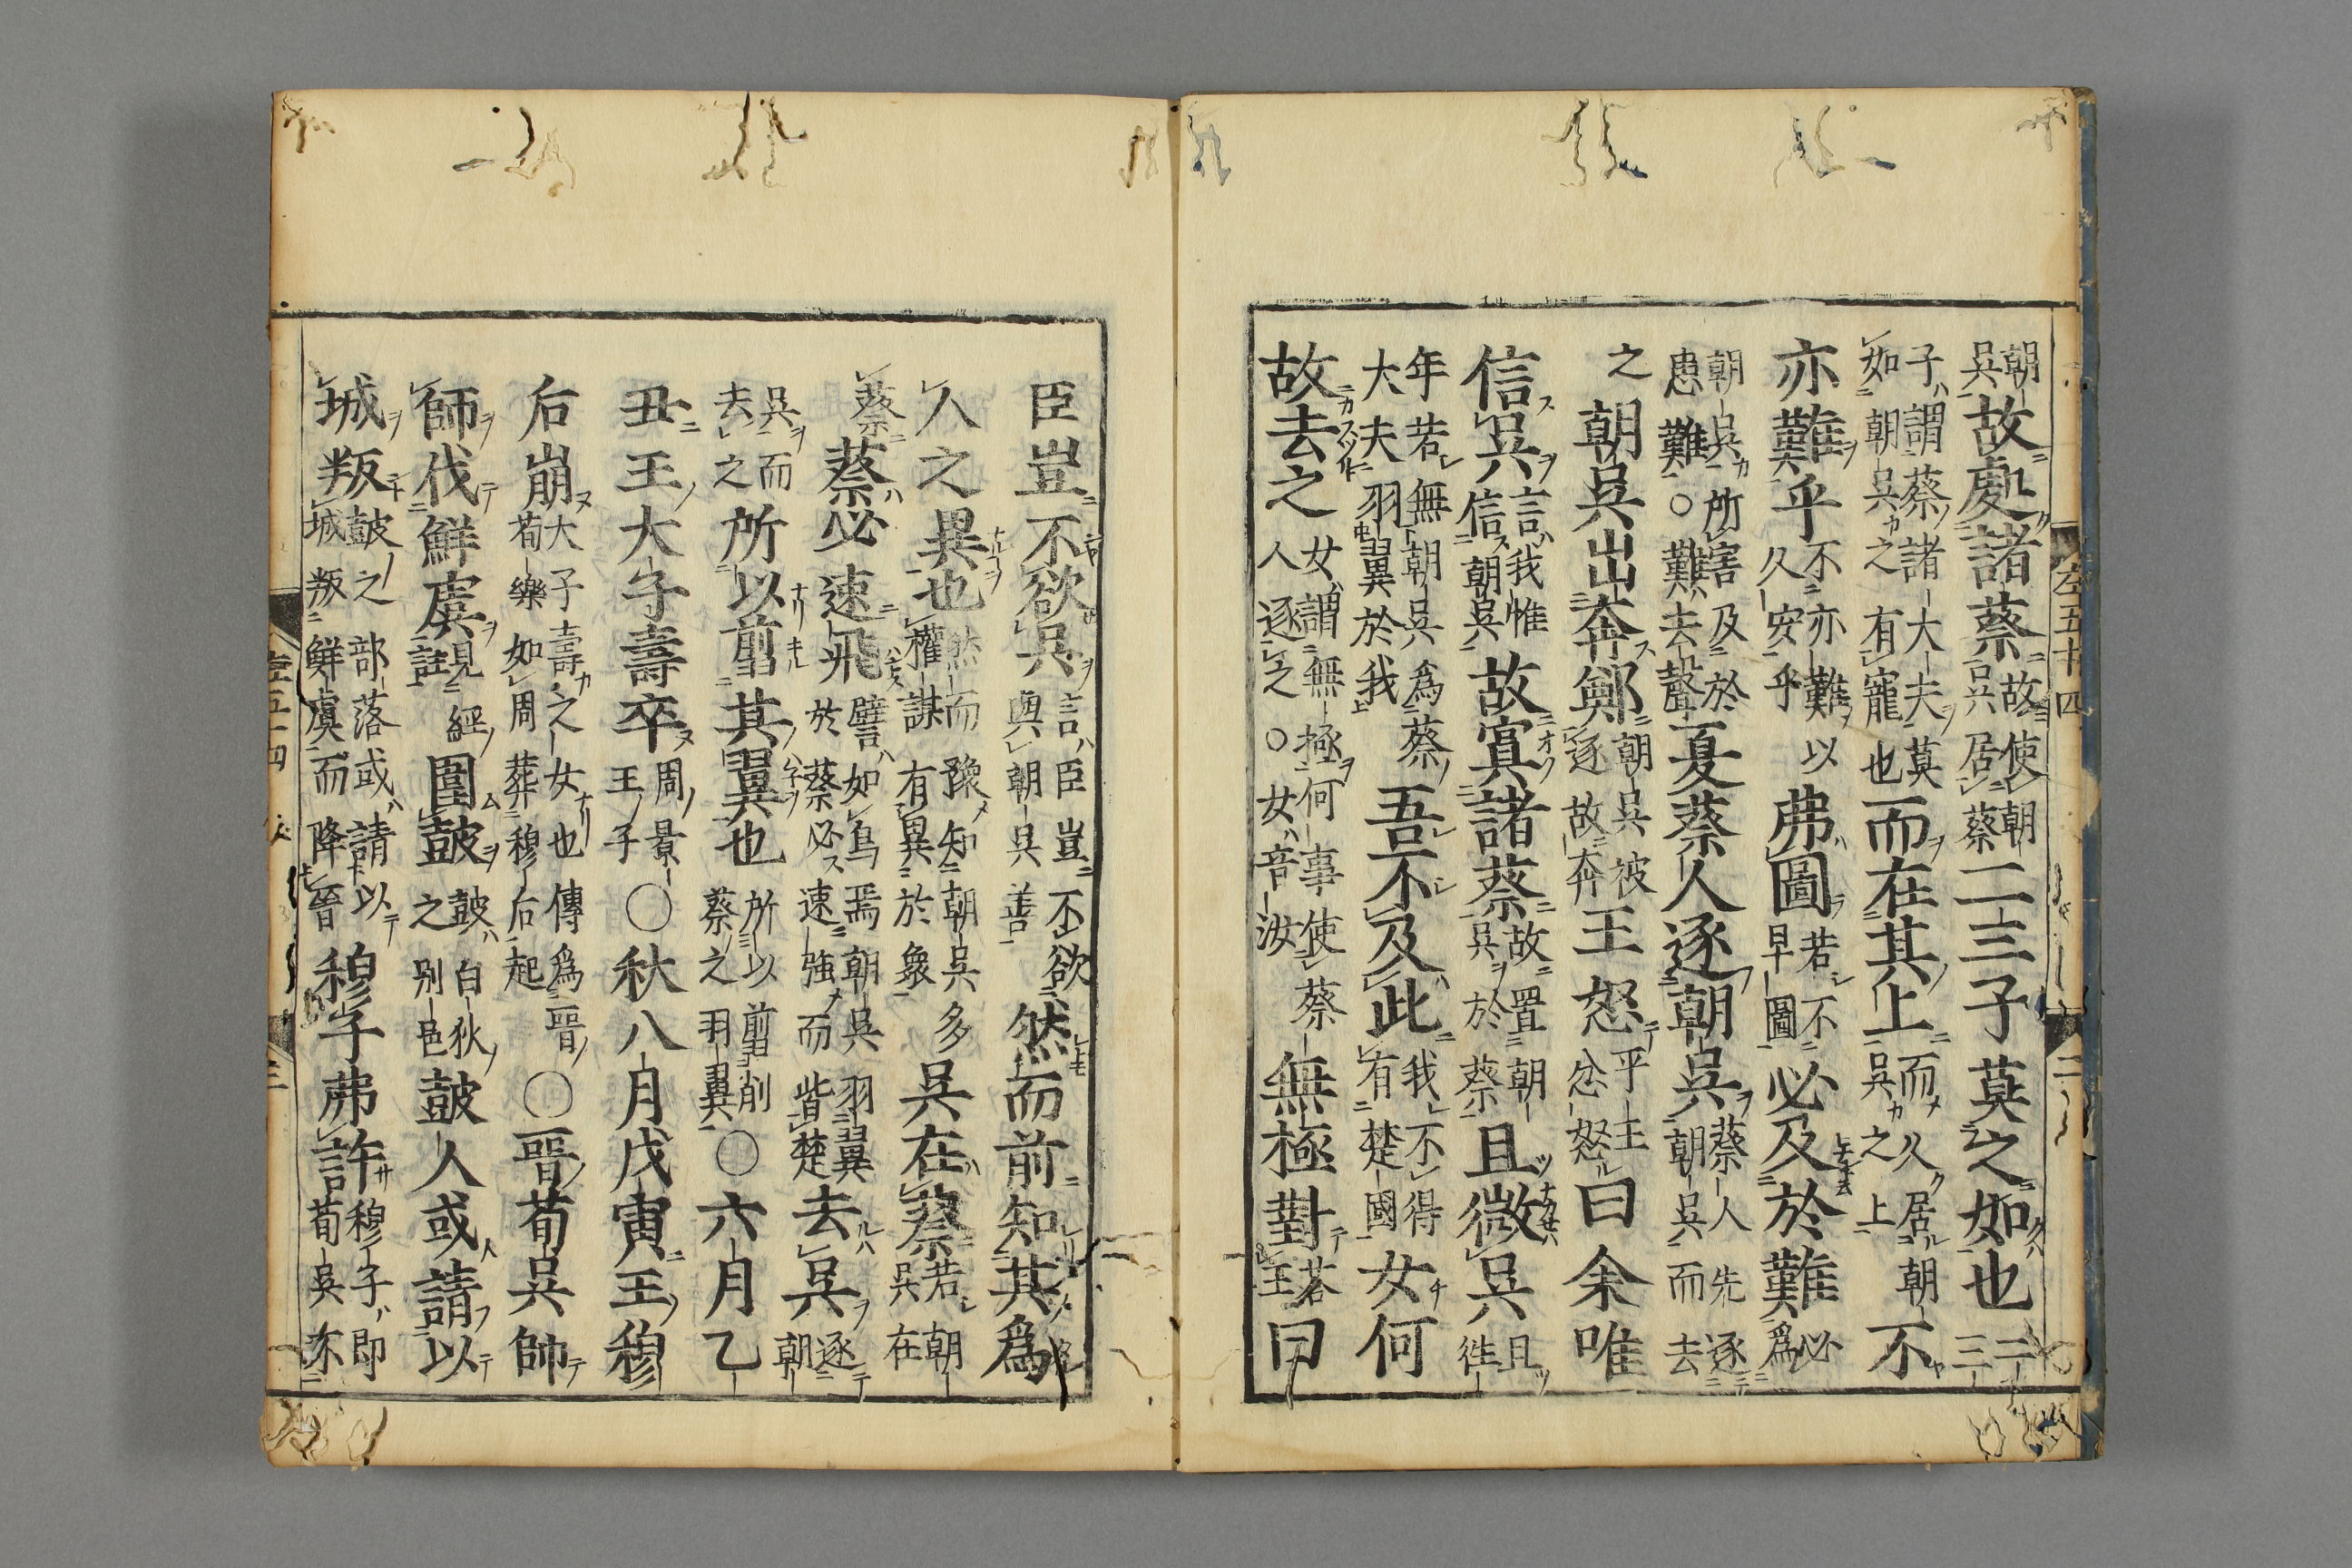 左五十四　二
朝吳故處諸蔡故使朝吳居蔡二三子莫之如也二三
子謂蔡諸大夫莫如朝吳之有寵也而在其上而久居朝吳之上不
亦難乎不亦難以久安乎弗圖若不早圖必及於難必爲
朝吳所害及於患難○難去聲夏蔡人逐朝吳蔡人先逐朝吳而去
之朝吳出奔鄭朝吳被逐故奔王怒平王忿怒曰余唯
信吳言我惟信朝吳故寘諸蔡故置朝吳於蔡且微吳且徃
年若無朝吳爲蔡大夫羽翼於我吾不及此我不得有楚國女何
故去之女謂無極何事使蔡人逐之○女音汝無極對荅王曰
臣豈不欲吳言臣豈不欲與朝吳善然而前知其爲
人之異也然而豫知朝吳多權謀有異於衆吳在蔡若朝吳在
蔡蔡必速飛譬如鳥焉朝吳羽翼於蔡必速強而背楚去吳逐朝
吳而去之所以剪其翼也所以剪削蔡之羽翼○六月乙
丑王大子壽卒周景王子○秋八月戊寅王穆
后崩大子壽之女也傳爲晉荀樂如周葬穆后起○晉荀吳帥
師伐鮮虞見經註圍鼓鼓白狄之別邑鼓人或請以
城叛鼓之部落或請以城叛鮮虞而降晉穆子弗許穆子即荀吳亦
左五十四　三